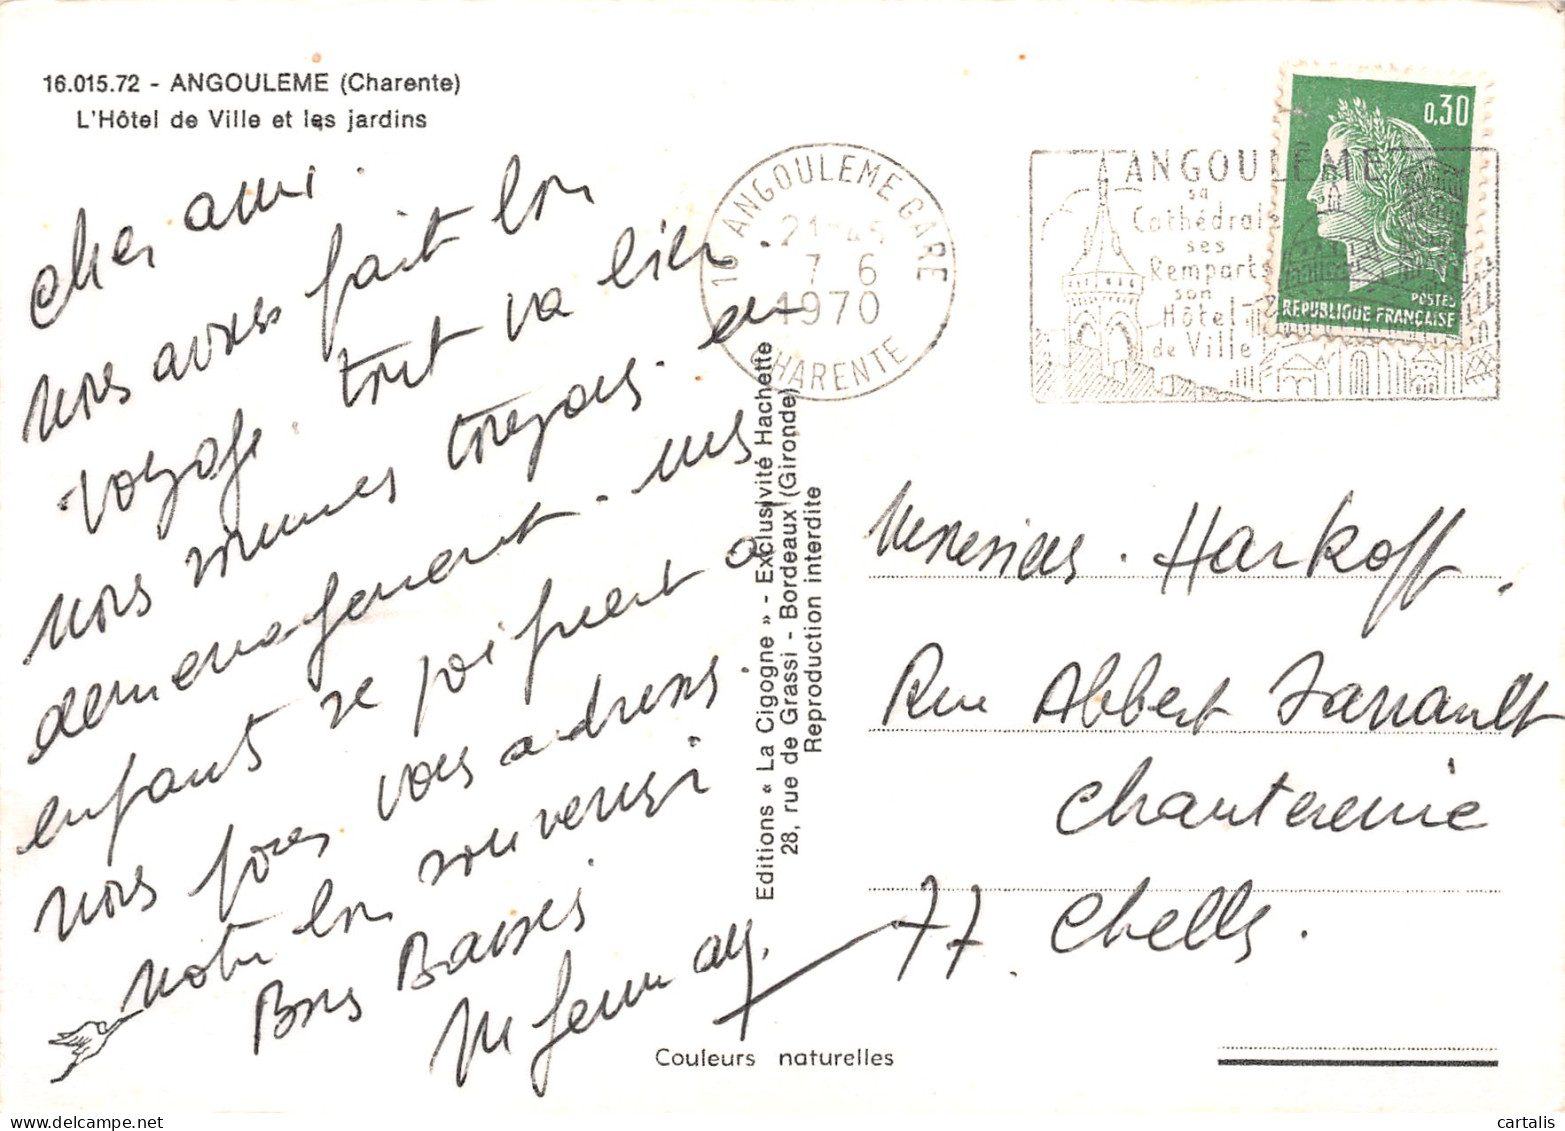 16.015.72 - ANGOULEME (Charente)
L'Hôtel de Ville et les jardins
Cher ami.
Nous avons fait bon
voyage. tout va bien.
Nous sommes toujours en
demenagement. nes
enfants se joignent a
Nous pour vous adresses
notre bon souvenir
Bons Baisers
16 ANGOULEME GARE
21-45
7 6
1970
CHARENTE
ANGOULEME
sa
Cathédrale
ses
Remparts
son
Hôtel
de Ville
0,30
POSTES
REPUBLIQUE FRANÇAISE
Editions « La Cigogne » - Exclusivité Hachette
28, rue de Grassi - Bordeaux (Gironde)
Reproduction interdite
Harkoff.
Rue Abbert Sarrault
Chantereine
77. Chells.
Couleurs naturelles
cartalis